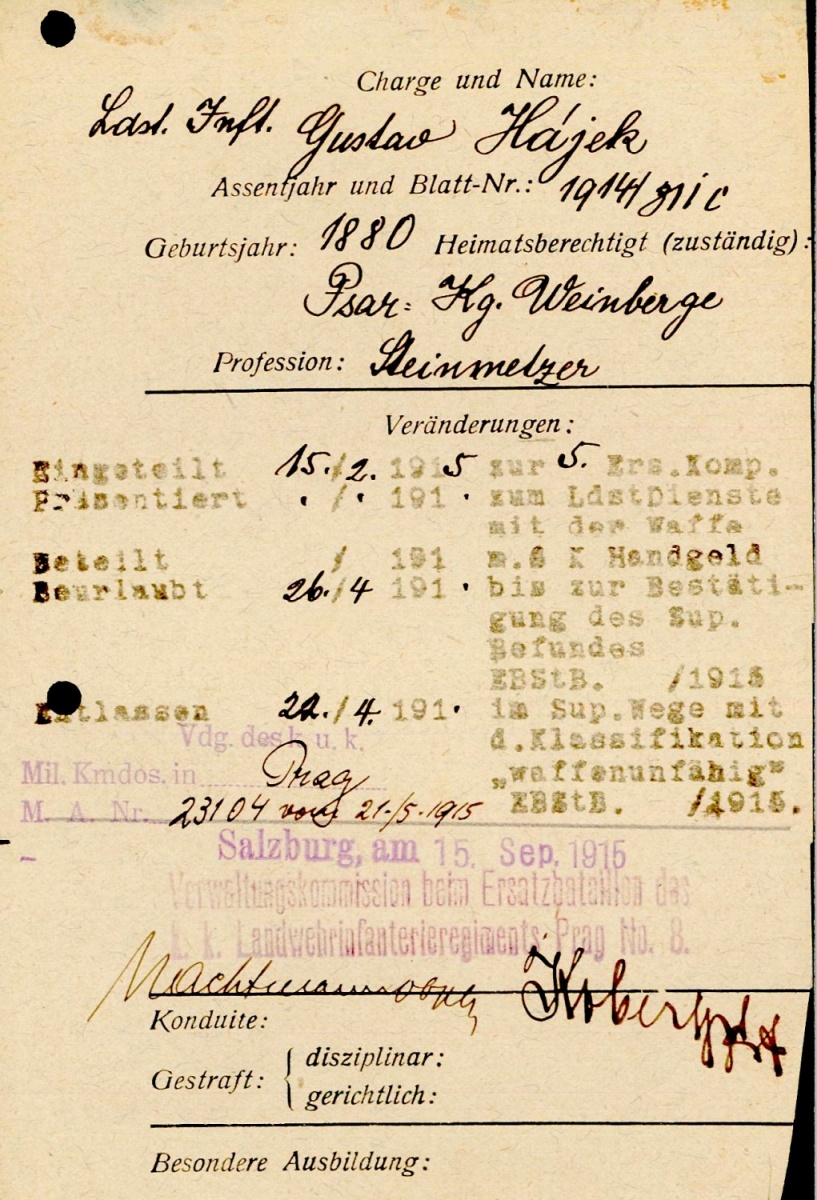 Charge und Name:
Ldst. Inft. Gustav Hájek
Assentjahr und Blatt-Nr.: 1914/
Geburtsjahr: 1880 Heimatsberechtigt (zuständig):
Psar= Kg. Weinberge
Profession: Steinmetzer
Veränderungen:
Eingeteilt 15./2. 1915 zur 5. Ers.Komp.
Präsentiert . / . 191 . zum LdstDienste
mit der Waffe
Beteilt / 191 m.6 K Handgeld
Beurlaubt 26./4 191 . bis zur Bestäti-
gung des Sup.
Befundes
EBStB. /1915
Entlassen 22./4. 191. im Sup.Wege mit
Vdg. des k. u. k. d.Klassifikation
Mil. Kmdos. in Prag „waffenunfähig"
M. A. Nr. 23104 vom 21./5.1915 EBStB. /1915.
Salzburg, am 15. Sep. 1915
Verwaltungskommission beim Ersatzbataillon des
k. k. Landwehrinfanterieregiments Prag No. 8.
Konduite:
Gestraft: { disziplinar:
gerichtlich:
Besondere Ausbildung: